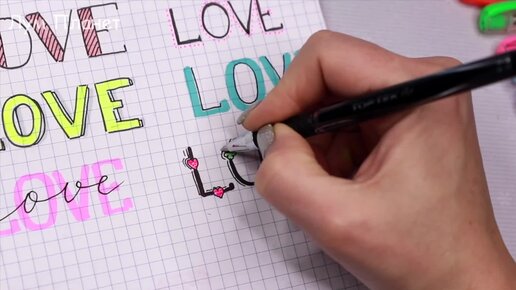 LOVE
LOVE
LOVE
LOVE
LOVE
Love
LO